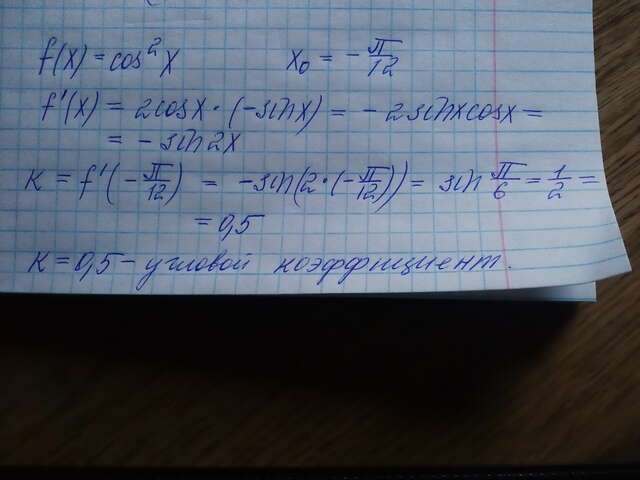 f(x) = cos²x x₀ = -π/12
f'(x) = 2cosx · (-sinx) = -2sinxcosx =
= -sin2x
к = f'(-π/12) = -sin(2·(-π/12)) = sin π/6 = 1/2 =
= 0,5
к = 0,5 - угловой коэффициент.